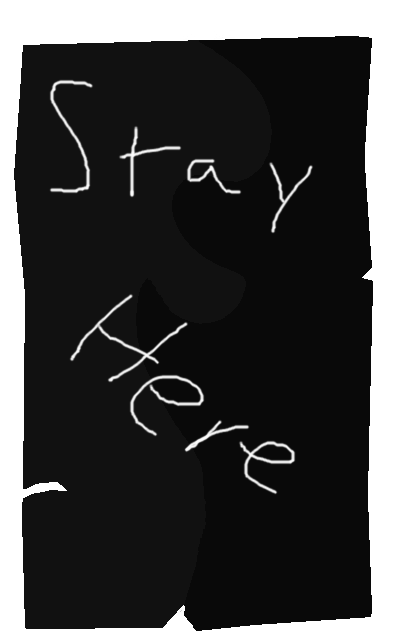 Stay
Here